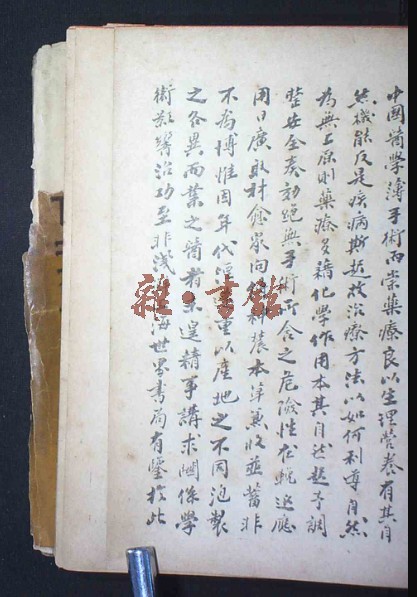 中國醫學薄手術而崇藥療良以生理營養有其自
然機能反是疾病斯起故治療方法以如何利導自然
為無上原則藥療多藉化學作用本其自然起予調
整安全奏効絕無手術所含之危險性在輓近應
用日廣取材愈繁向從神農本草兼收並蓄非
不為博惟因年代湮遠重以產地之不同泡製
之各異而業之醫者未遑精事講求關係學
術影響治功至非淺海世界書局有鑒於此
雜·書館